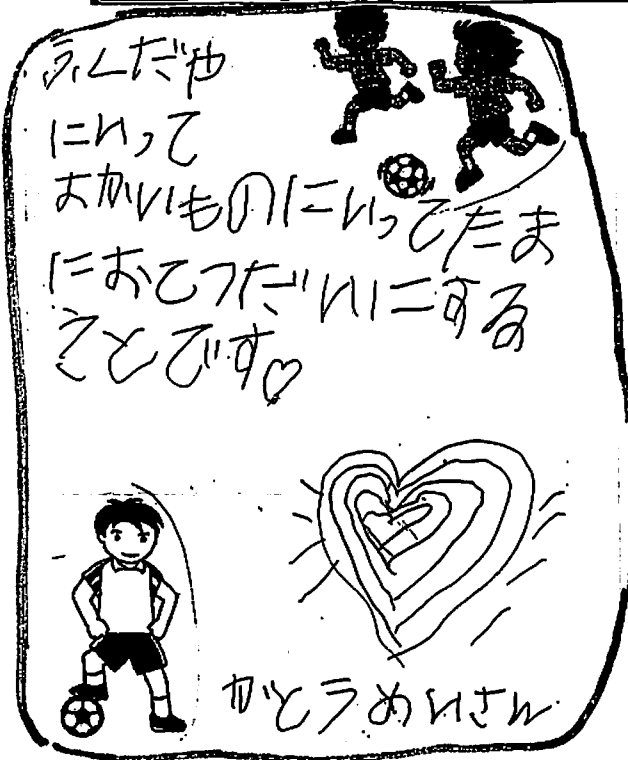 ふくだや
にいって
おかいものにいってたま
におてつだいにする
ことです♡
かとうめいさん